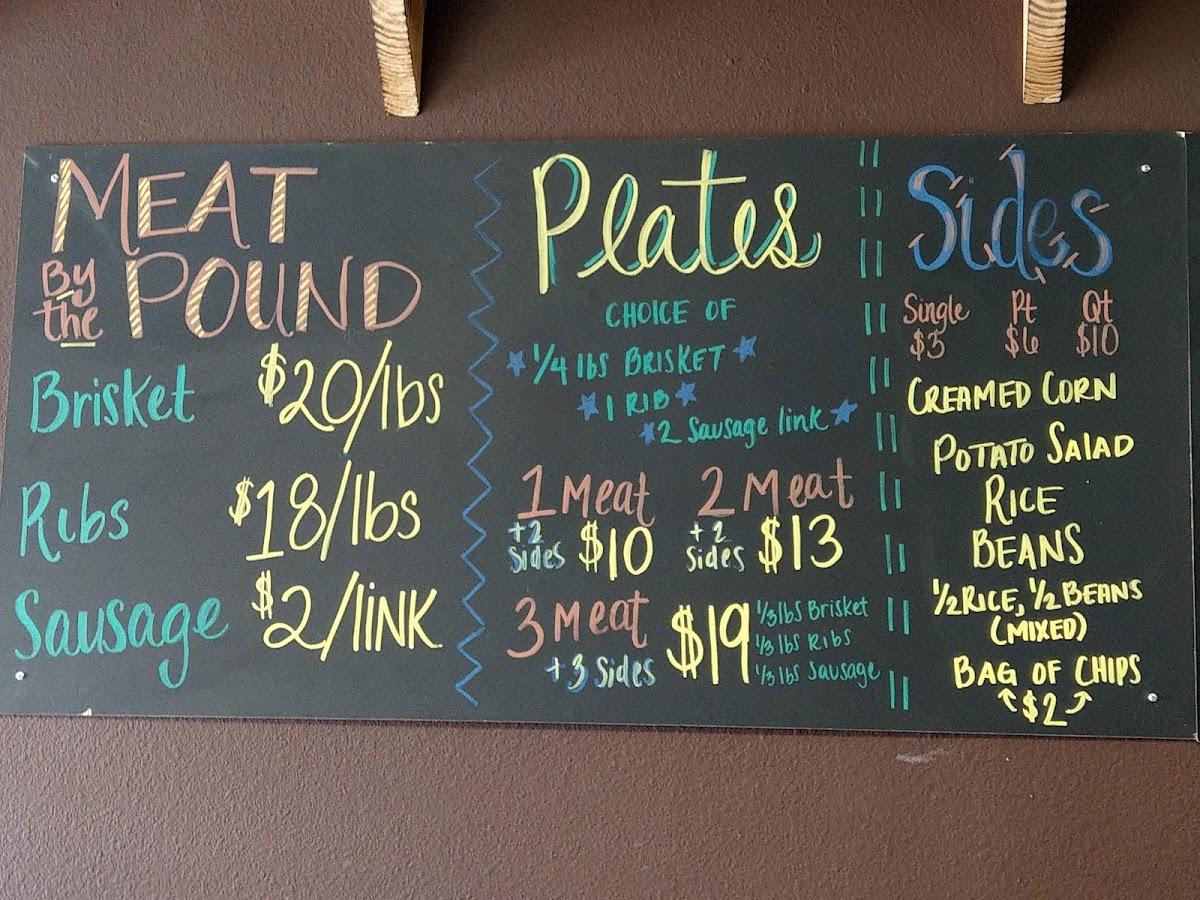 MEAT
By the POUND
Brisket $20/lbs
Ribs $18/lbs
Sausage $2/link
Plates
CHOICE OF
1/4 lbs BRISKET
1 RIB
2 Sausage link
1 Meat 2 Meat
+2 Sides $10 +2 Sides $13
3 Meat
+3 Sides $19
1/3 lbs Brisket
1/3 lbs Ribs
1/3 lbs Sausage
Sides
Single Pt Qt
$3 $6 $10
CREAMED CORN
POTATO SALAD
RICE
BEANS
1/2 RICE, 1/2 BEANS
(MIXED)
BAG OF CHIPS
$2